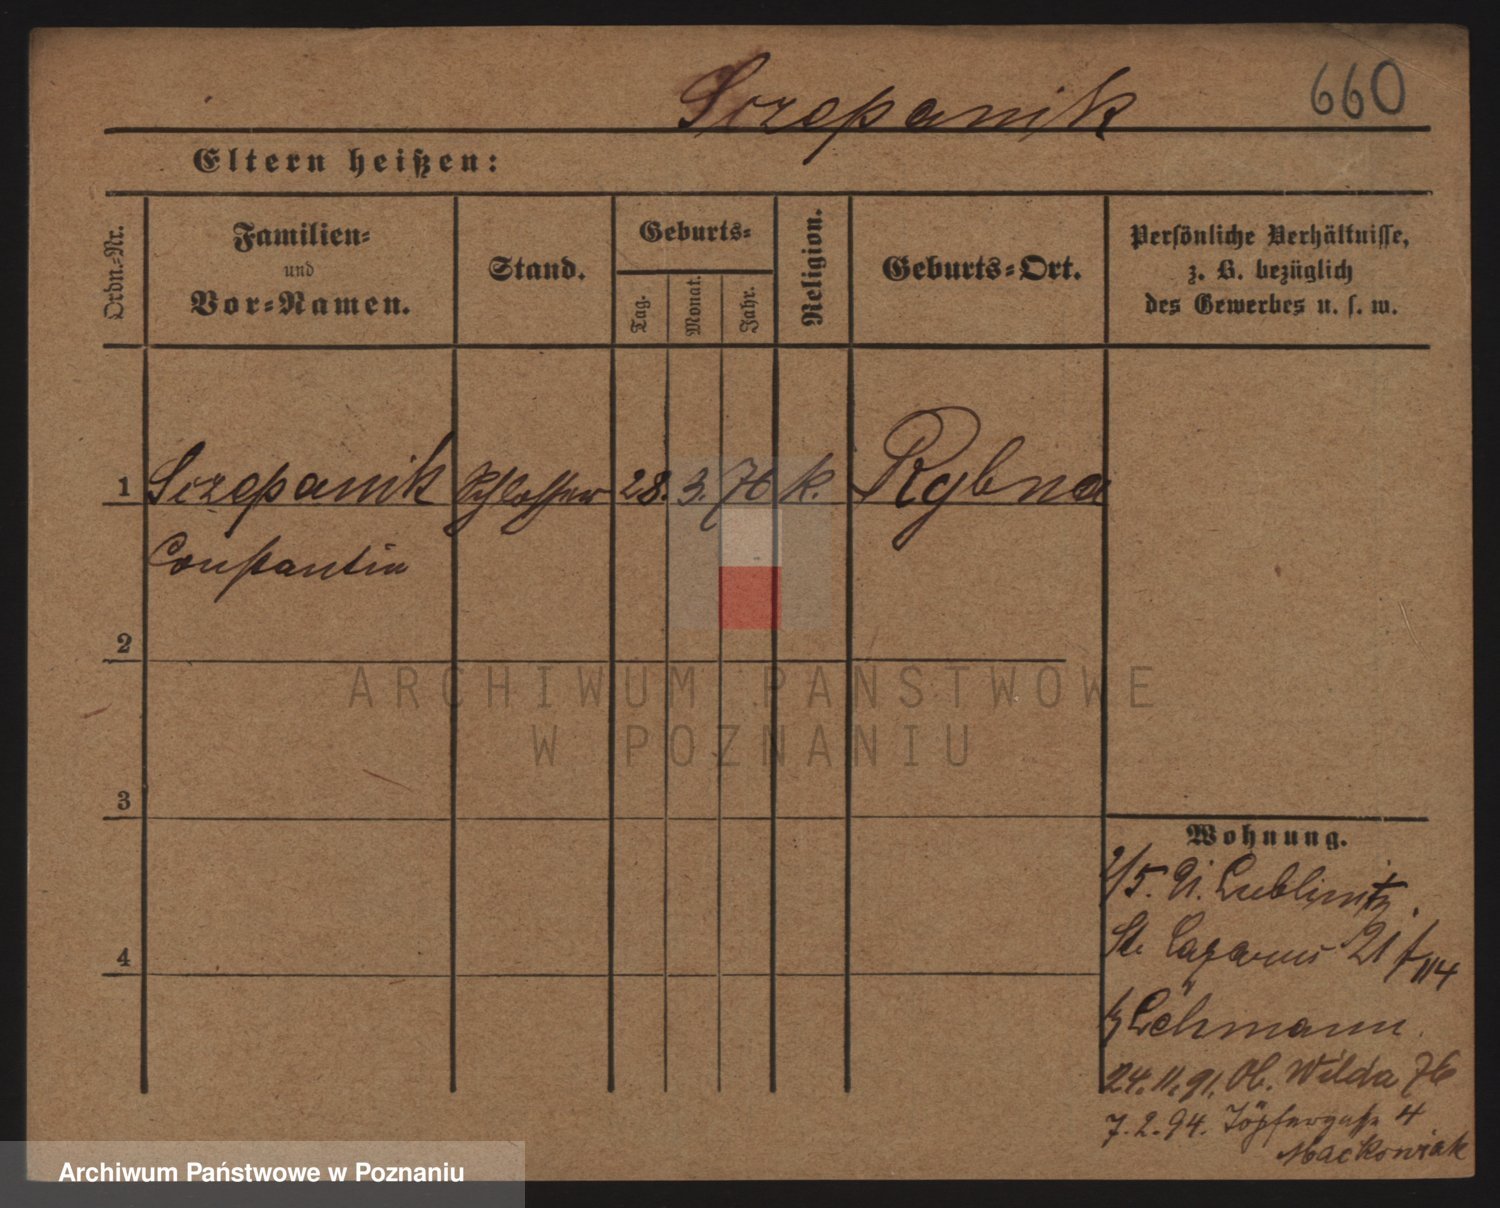 Sczepanik 660
Eltern heißen:
Ordn.-Nr.
Familien-
und
Vor-Namen.
Stand.
Geburts-
Tag.
Monat.
Jahr.
Religion.
Geburts-Ort.
Persönliche Verhältnisse,
z. B. bezüglich
des Gewerbes u. s. w.
1 Sczepanik Schlosser 28. 3. 76 k. Rybna
Constantin
2
3
4
Wohnung.
2/5. Lublinitz.
St. Lazarus 21
Lehmann.
24.11.91. Ob. Wilda 76
7.2.94. Töpfergasse 4
Mackowiak
ARCHIWUM PAŃSTWOWE
W POZNANIU
Archiwum Państwowe w Poznaniu